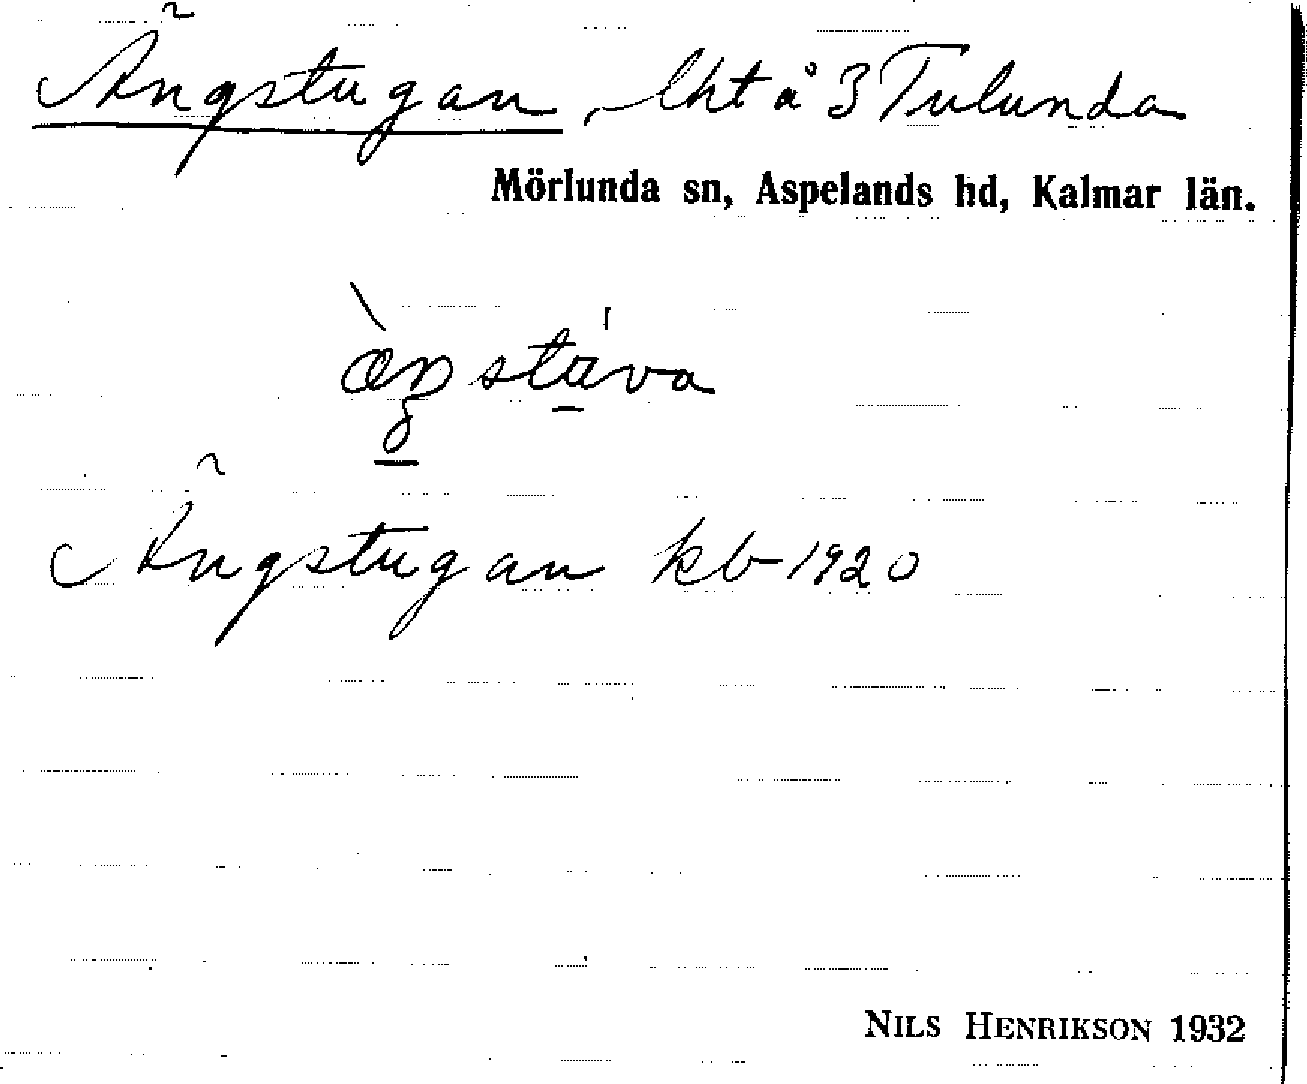 Ängstugan, lht å 3 Tulunda
Mörlunda sn, Aspelands hd, Kalmar län.
Ängstugan kb 1920
NILS HENRIKSON 1932